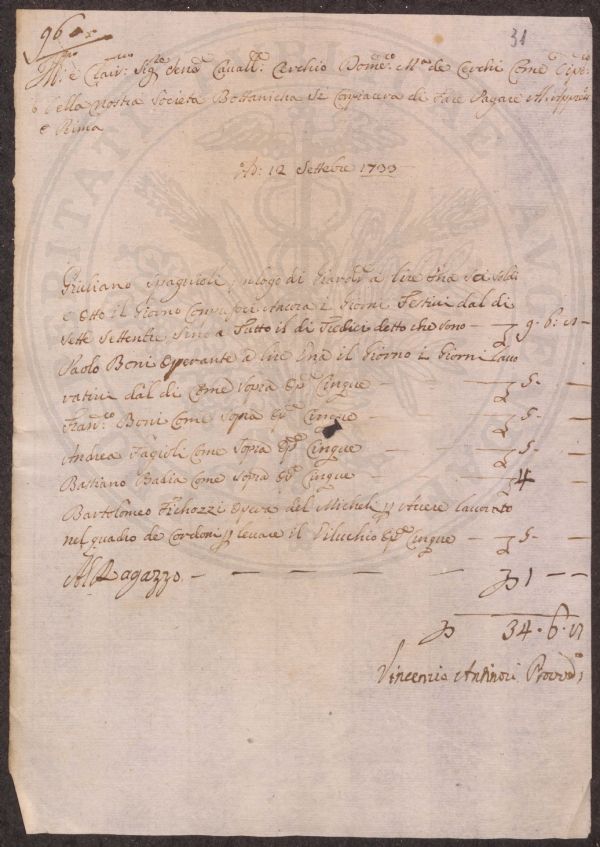 96
31
Ill: e Clariss: Sigre Senre Cavallre Cerchio Domco Ma de Cerchi Come
della nostra Societa Bottanicha Se Compiacera di Fare Pagare
e Prima
Ad: 12 Settebre 1733
Giuliano Spagnioli in logo di Giardin: a lire Una Sei Soldi
e Otto il Giorno Compresi Ancora i Giorni Festivi dal di
Sette Settembre Sino a Tutto il di Tredici detto che Sono — 9.6:
Paolo Boni Operante a lire Una il Giorno i Giorni lavo
rativi dal di Come Sopra Opre Cinque — 5 —
Franco Boni Come Sopra Opre Cinque — 5 —
Andrea Fagioli Come Sopra Opre Cinque — 5 —
Bastiano Badia Come Sopra Opre Cinque — 4
Bartolomeo Opera del Micheli Avere lavorato
nel quadro de Cordoni levare il Opre Cinque — 5 —
Al Ragazzo — — — — 1 — —
34.6.
Vincenzio Antinori Provvre